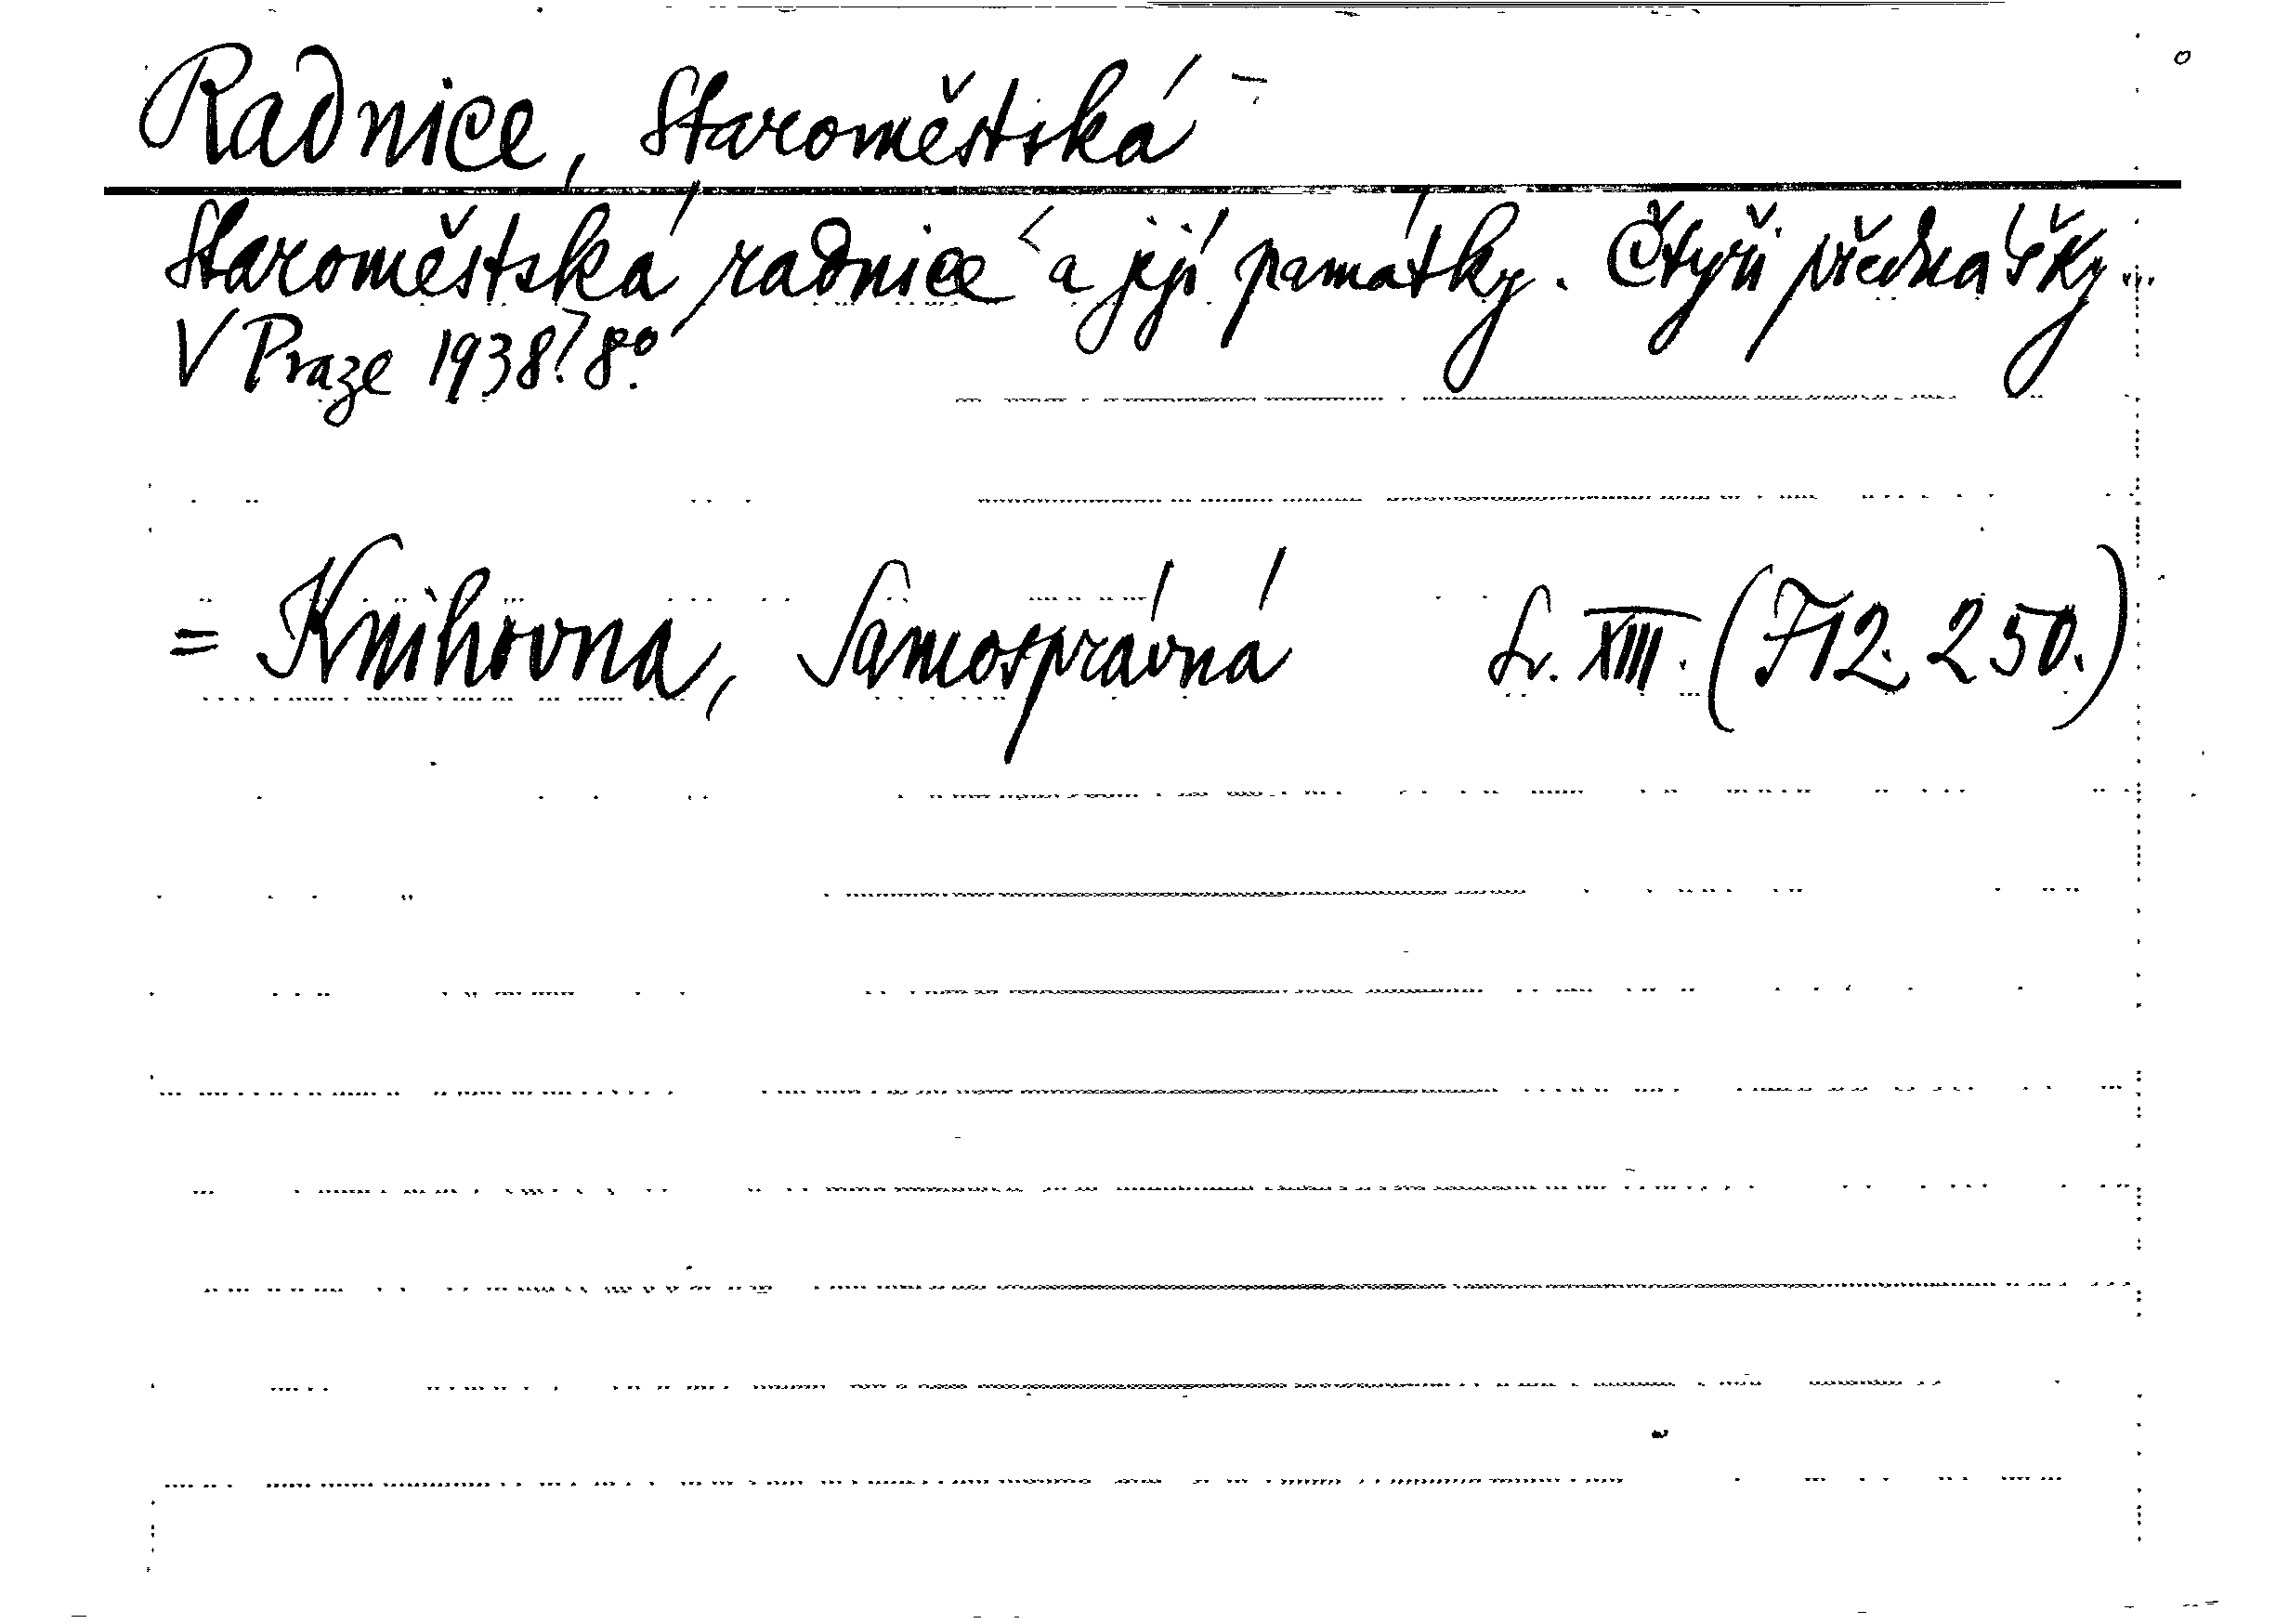 Radnice, Staroměstská
Staroměstská radnice a její památky. Čtyři přednášky...
V Praze 1938. 8°.
= Knihovna, Samosprávná Sv. XIII. (F12. 250.)